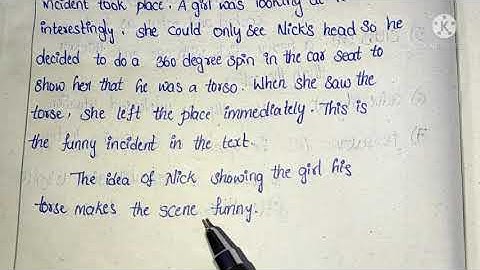 incident took place. A girl was looking at
interestingly. she could only see Nick's head so he
decided to do a 360 degree spin in the car seat to
show her that he was a torso. When she saw the
torse, she left the place immediately. This is
the funny incident in the text.
The idea of Nick showing the girl his
torse makes the scene funny.